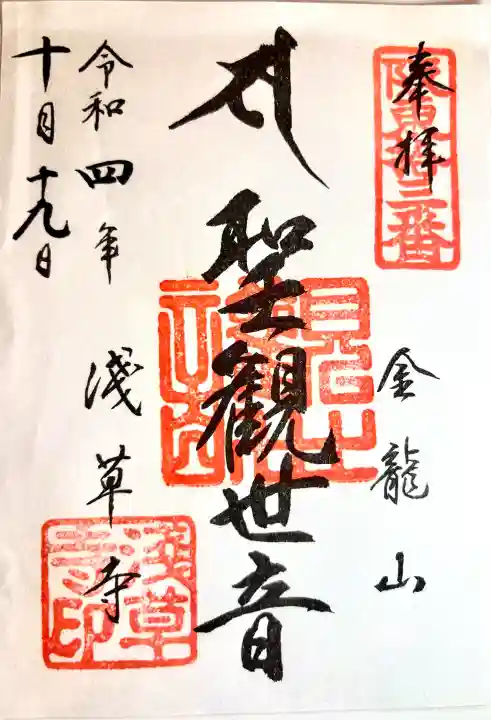 奉拝
金龍山
聖観世音
浅草寺
令和四年
十月十九日
浅草寺印